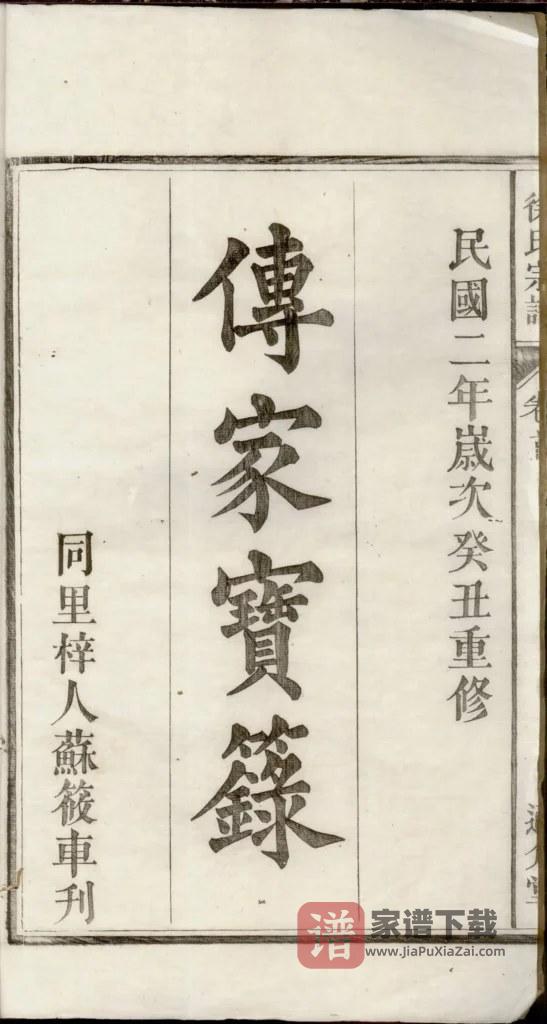 徐氏宗譜
民國二年歲次癸丑重修
傳家寶籙
同里梓人蘇筱車刊
谱 家谱下载
www.JiaPuXiaZai.com